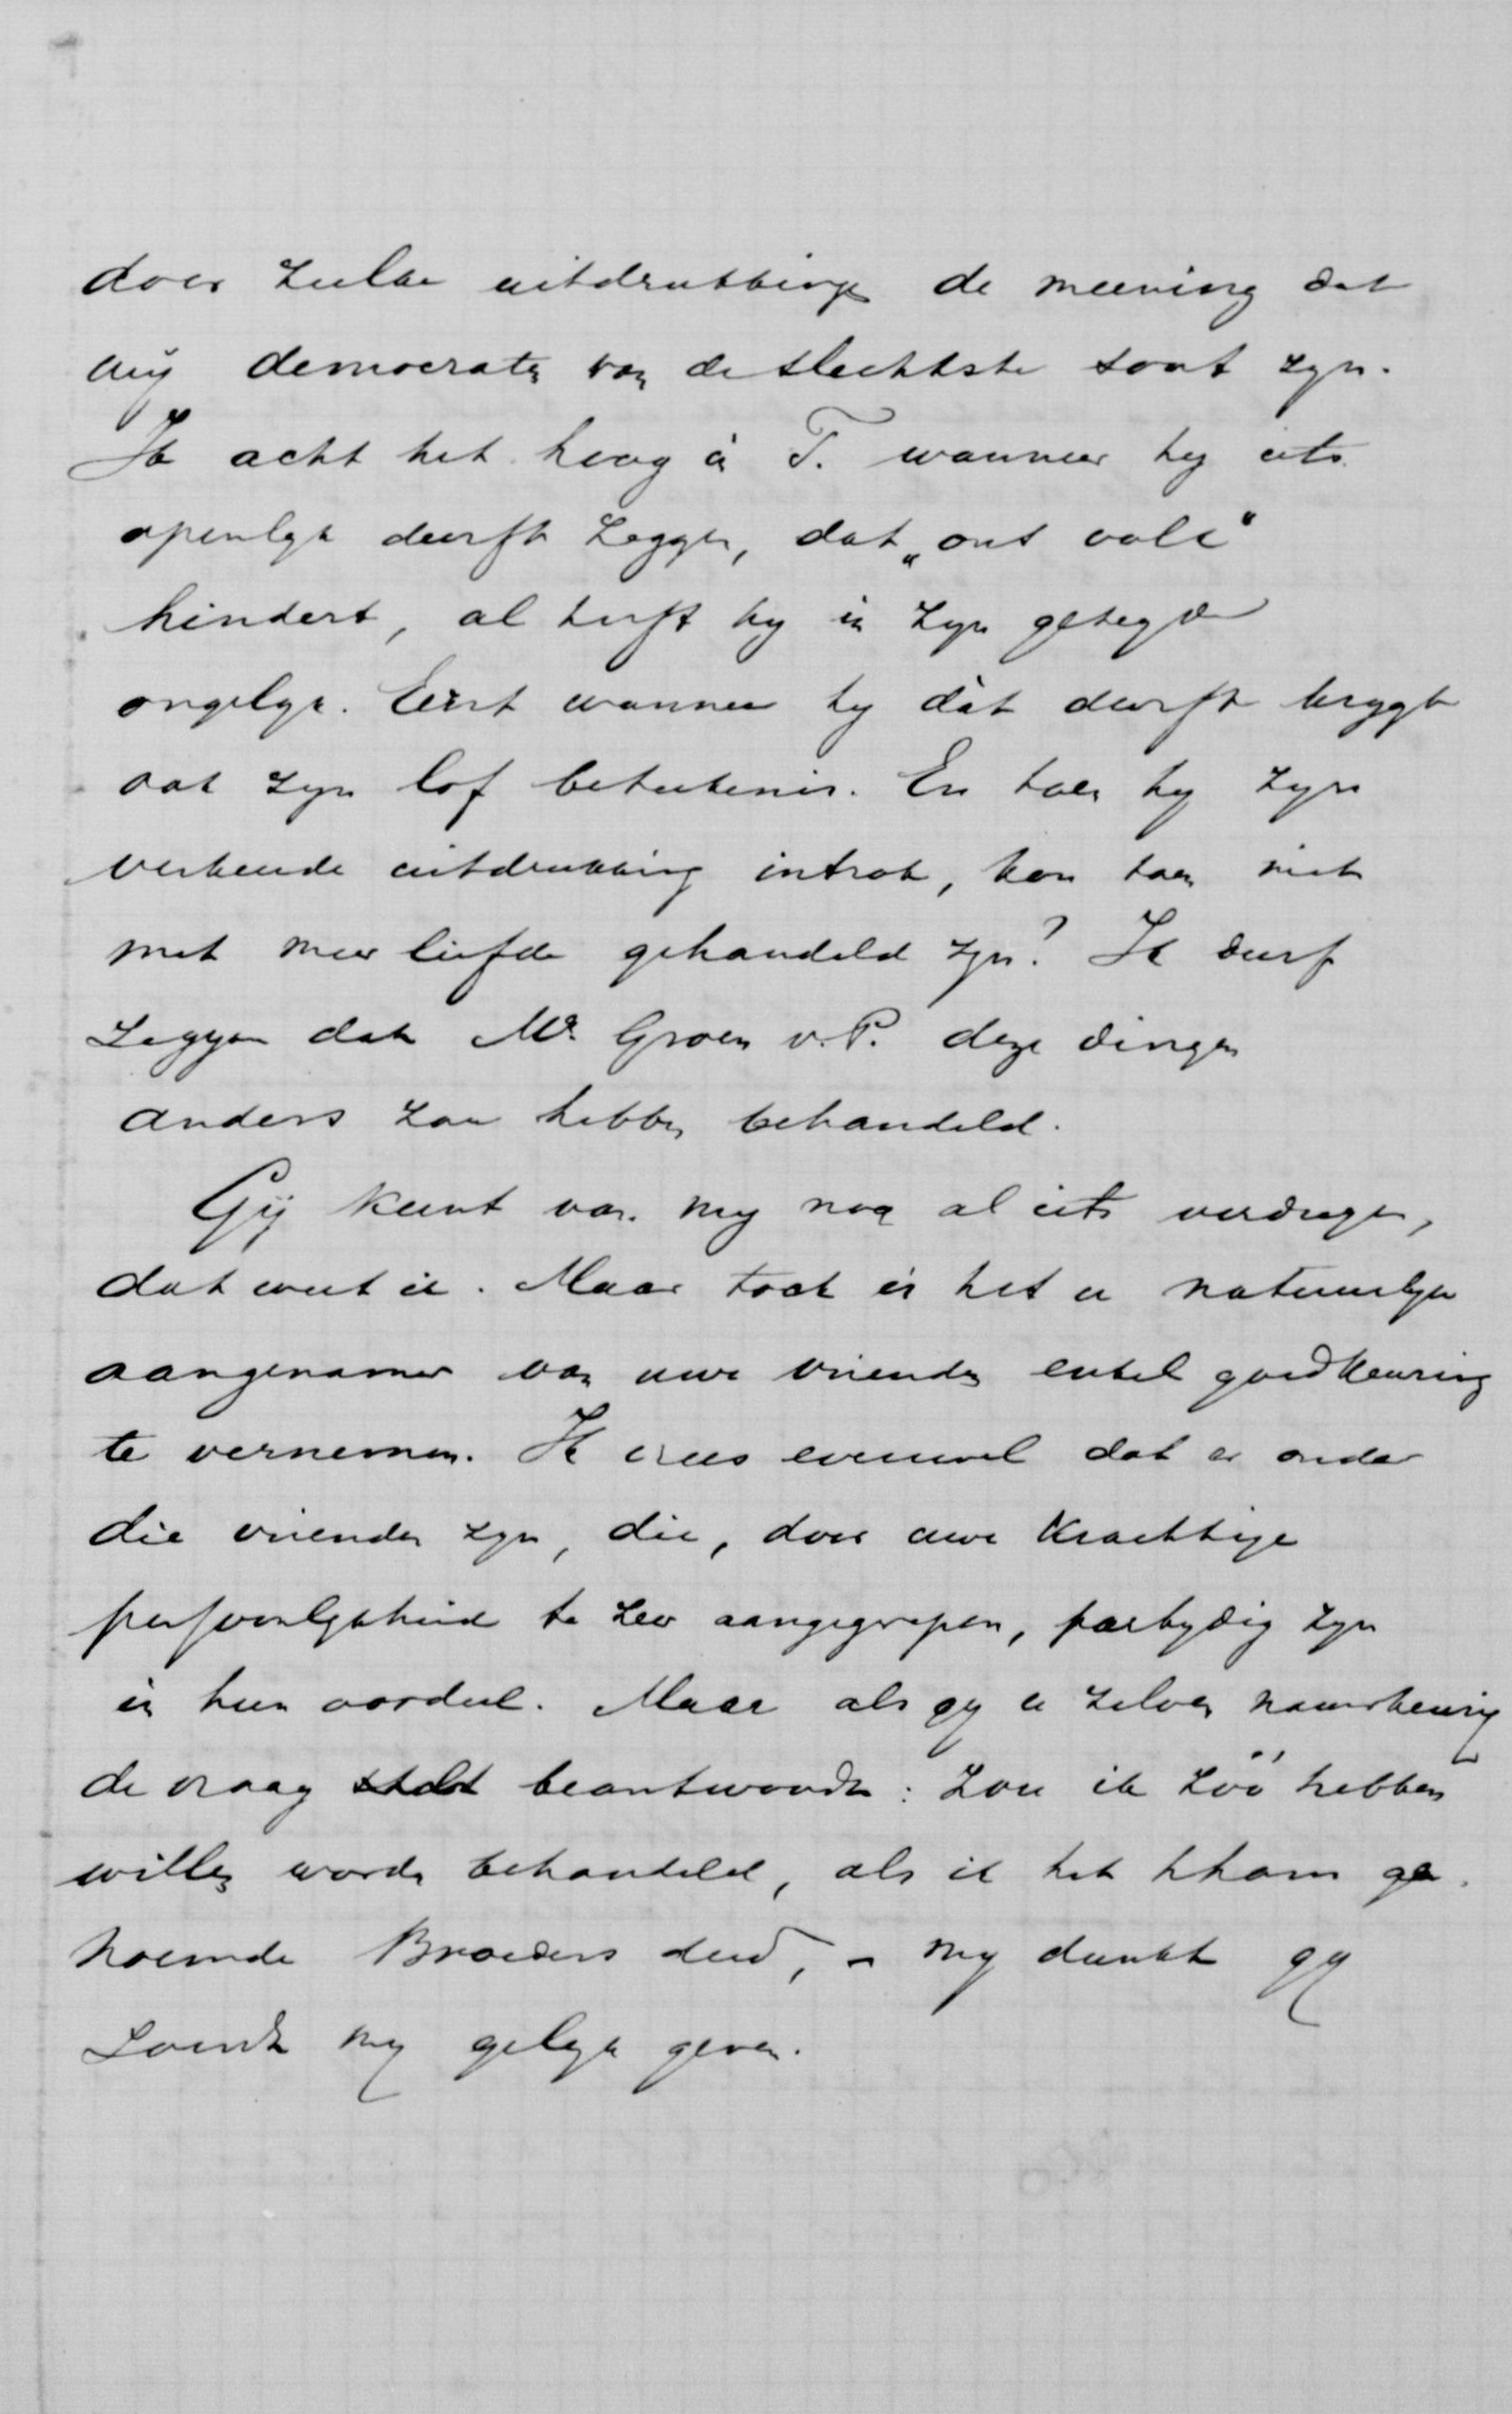 door zulke uitdrukkingen de meening dat
wij democraten van de slechtste soort zyn.
Ik acht het hoog in T. wanneer hy iets
openlyk durft zeggen, dat „ons volk"
hindert, al heeft hy in zyn gezegde
ongelyk. Eerst wanneer hy dàt durft krygt
ook zyn lof beteekenis. En toen hy zyn
verkeerde uitdrukking introk, kon toen niet
met meer liefde gehandeld zyn? Ik durf
zeggen dat Mr. Groen v. P. deze dingen
anders zou hebben behandeld.
Gij kunt van my nog al iets verdragen,
dat weet ik. Maar toch is het u natuurlyk
aangenamer van uwe vrienden enkel goedkeuring
te vernemen. Ik vrees evenwel dat er onder
die vrienden zyn, die, door uwe krachtige
persoonlykheid te zeer aangegrepen, partydig zyn
in hun oordeel. Maar als gy u zelven nauwkeurig
de vraag beantwoordt: Zou ik zóó hebben
willen worden behandeld, als ik het thans ge-
noemde Broeders deed, - my dunkt gy
zoudt my gelyk geven.